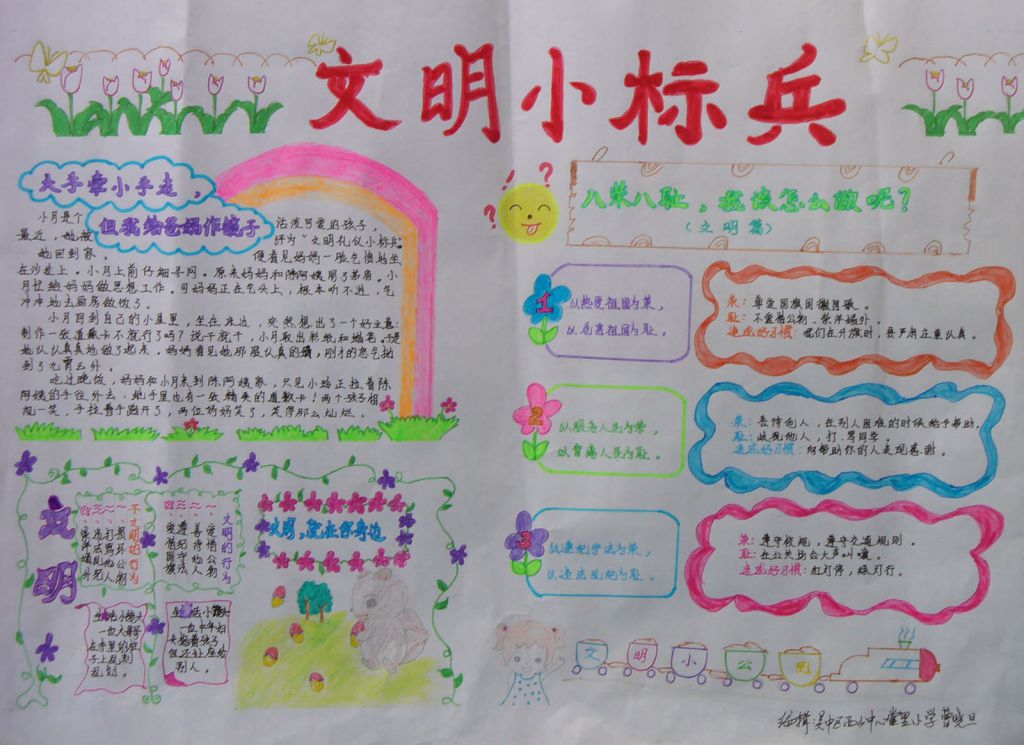 文明小标兵
大手牵小手走，
但我给爸妈作镜子
小月是个
活泼可爱的孩子，
最近，她被
评为"文明礼仪小标兵"
她回到家，
便看见妈妈一脸气愤地坐
在沙发上。小月上前仔细寻问。原来妈妈和陈阿姨闹了矛盾。小
月忙给妈妈做思想工作。可妈妈正在气头上，根本听不进，气
冲冲地去厨房做饭了。
小月回到自己的小屋里，坐在床边，突然想出了一个好主意：
制作一张道歉卡不就行了吗？说干就干，小月取出彩纸和蜡笔，于是
她认认真真地做了起来。妈妈看见她那股认真的模，刚才的怒气抛
到了九霄云外。
吃过晚饭，妈妈和小月来到陈阿姨家，只见小玲正拉着陈
阿姨的手往外去，她手里也有一张精美的道歉卡！两个孩子相
视一笑，手拉着手跑开了，两位妈妈笑了，笑得那么灿烂。
八荣八耻，我该怎么做呢？
（文明篇）
1
以热爱祖国为荣，
以危害祖国为耻。
荣：尊重国旗国徽国歌。
耻：不爱惜公物，崇洋媚外。
造成好习惯：我们在升旗时，要严肃庄重认真。
2
以服务人民为荣，
以背离人民为耻。
荣：善待他人，在别人困难的时候给予帮助。
耻：歧视他人，打骂同学。
造成好习惯：向帮助你的人表现感谢。
3
以遵纪守法为荣，
以违法乱纪为耻。
荣：遵守校规，遵守交通规则。
耻：在公共场合大声叫嚷。
造成好习惯：红灯停，绿灯行。
文明
不文明的行为
文明的行为
文明，就在你身边
生活小镜头
生活小镜头
文明小公民
编辑：吴中区西山中心堂里小学 曹晓旦